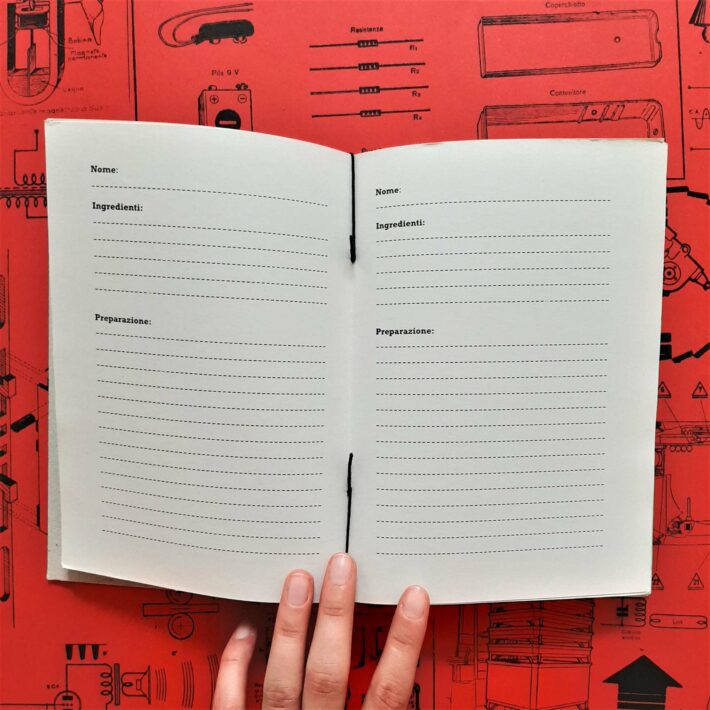 Bobina
Magnete
permanente
Legno
Pila 9 V
Resistenze
R1
R2
R3
R4
Coperchietto
Contenitore
C.A.
Nome:
Ingredienti:
Preparazione:
Nome:
Ingredienti:
Preparazione:
6
7
21